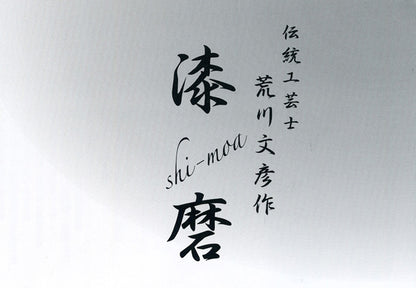 伝統工芸士
荒川文彦作
漆
shi-moa
磨